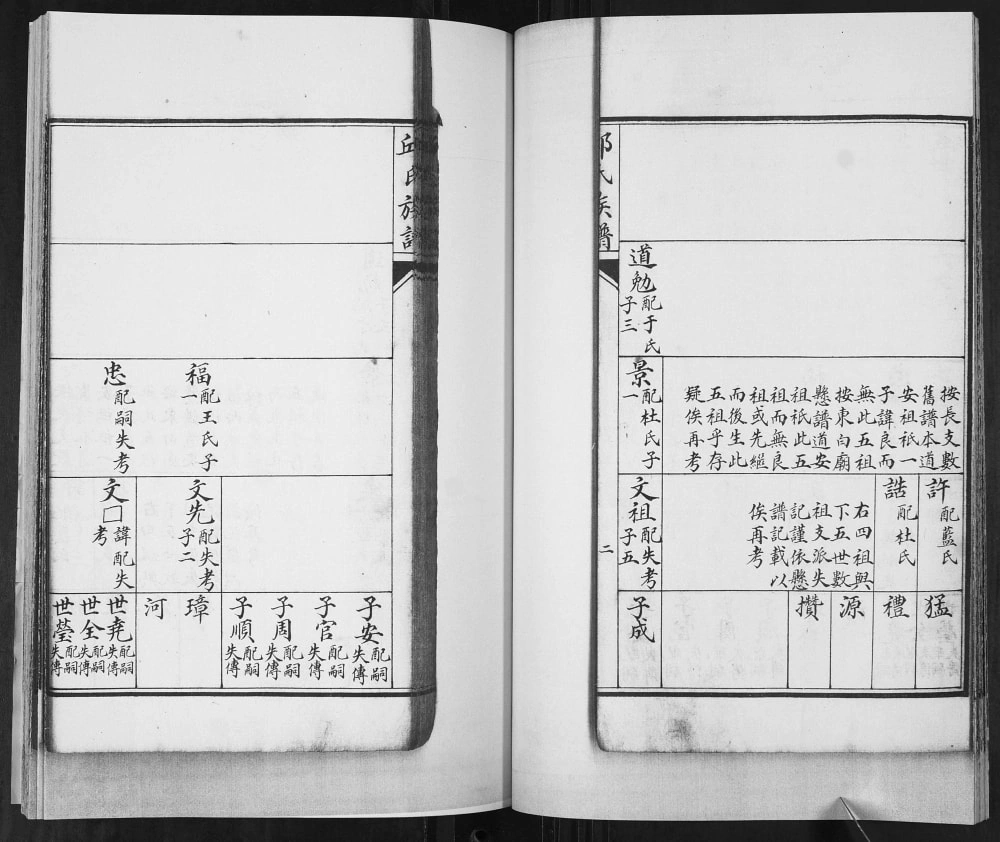 按長支數
舊譜本道
安祖祇一
子諱良而
無此五祖
按東向廟
懸譜道安
祖祇此五
祖而無良
祖或先繼
而後生此
五祖乎存
疑俟再考
許配藍氏
誥配杜氏
右四祖與
下五世數
祖支派失
記謹依懸
譜記載以
俟再考
猛
禮
源
攢
道勉配于氏
子三
景配杜氏子
一
文祖配失考
子五
子成
邱氏族譜
二
邱氏族譜
福配王氏子
一
忠配嗣失考
文先配失考
子二
文囗諱配失
考
子安配嗣
失傳
子官配嗣
失傳
子周配嗣
失傳
子順配嗣
失傳
璋
河
世堯配嗣
失傳
世全配嗣
失傳
世瑩配嗣
失傳